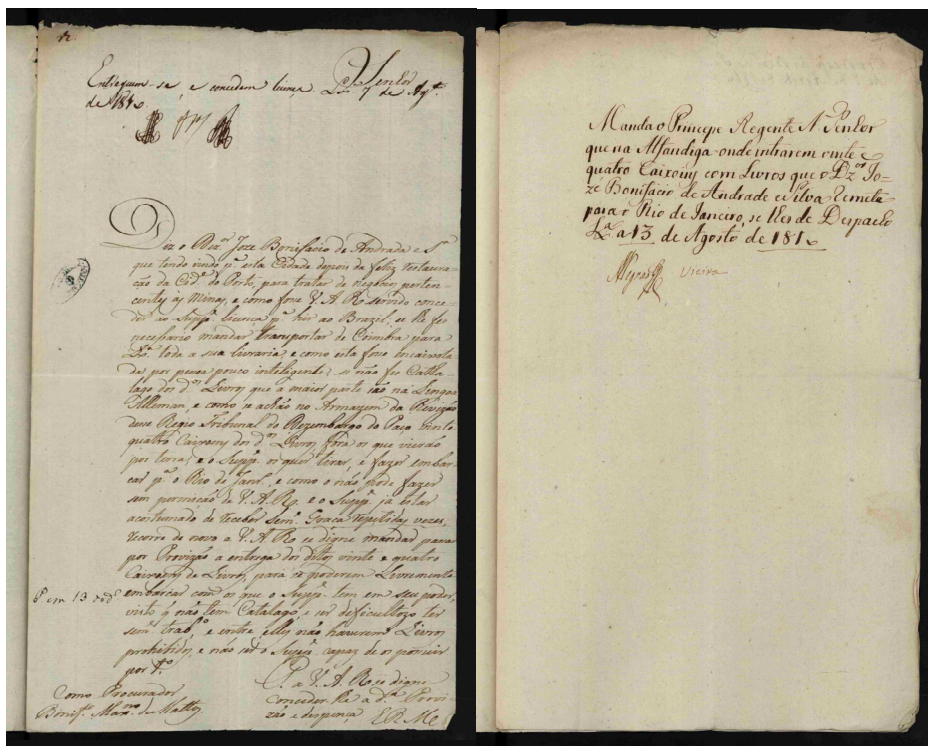 Entreguem-se e concedem licença Lxa 7 de Agto
de 1816
Senhor
Diz o Dezor Joze Bonifacio de Andrade e Sa
que tendo vindo pa esta Cidade depois da feliz restaura-
ção da Cide do Porto, para tratar de negocios perten-
centes ás Minas, e como fosse V. A. R. servido conce-
der ao Suppe licença pa hir ao Brazil, se lhe fes
necessario mandar transportar de Coimbra para
Lxa toda a sua livraria, e como esta fosse encaixota-
da por pessoa pouco inteligente, se não fes Catha-
lago dos dos Livros que a maior parte são na Lingoa
Alleman, e como se achão no Armazem da Revizão
deste Regio Tribunal do Dezembargo do Paço vinte
quatro Caixons dos dos Livros fóra os que vierão
por terra, e o Suppe os quer tirar, e fazer embar-
car pa o Rio de Janro, e como o não pode fazer
sem permição de V. A. R., e o Suppe já estar
acostumado de receber seme Graça repetidas vezes,
recorre de novo a V. A. R. se digne mandar passar
por Provizão a entrega dos dittos vinte e quatro
Caixons de Livros, para se poderem Livremente
embarcar com os que o Suppe tem em seu poder,
visto q não tem Catalago, e ser deficultozo ter
seme trabo, e entre elles não haverem Livros
prohibidos, e não ser o Suppe capaz de os possuir
por to
P. a V. A. R. se digne
conceder lhe a da Provi-
zão e despença
E R Me
P em 13 dod
Como Procurador
Bonifo Marno de Mattos
Manda o Principe Regente N. Senhor
que na Alfandiga onde intrarem vinte e
quatro Caixons com Livros que o Dzor Jo-
zé Bonifacio de Andrade e Silva remeta
para o Rio de Janeiro, se lhes de Despacho
Lxa a 13 de Agosto de 1816
Vieira